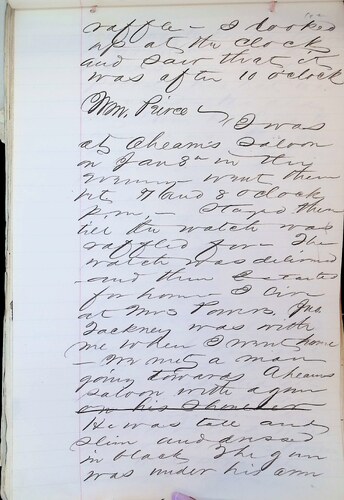 raffle – I looked
up at the clock
and saw that it
was after 10 oclock
Wm. Pierce –
"I was
at Aheams Saloon
on Jan 8th in the
evening went there
bet 7 and 8 oclock
P.m. – Stayed there
till the watch was
raffled for – The
watch was delivered
– and then I started
for home – I live
at Mrs Powers, Jno
Tackney was with
me when I went home
– We met a man
going towards Aheams
saloon with a gun
on his Shoulder
He was tall and
slim and dressed
in black The gun
was under his arm